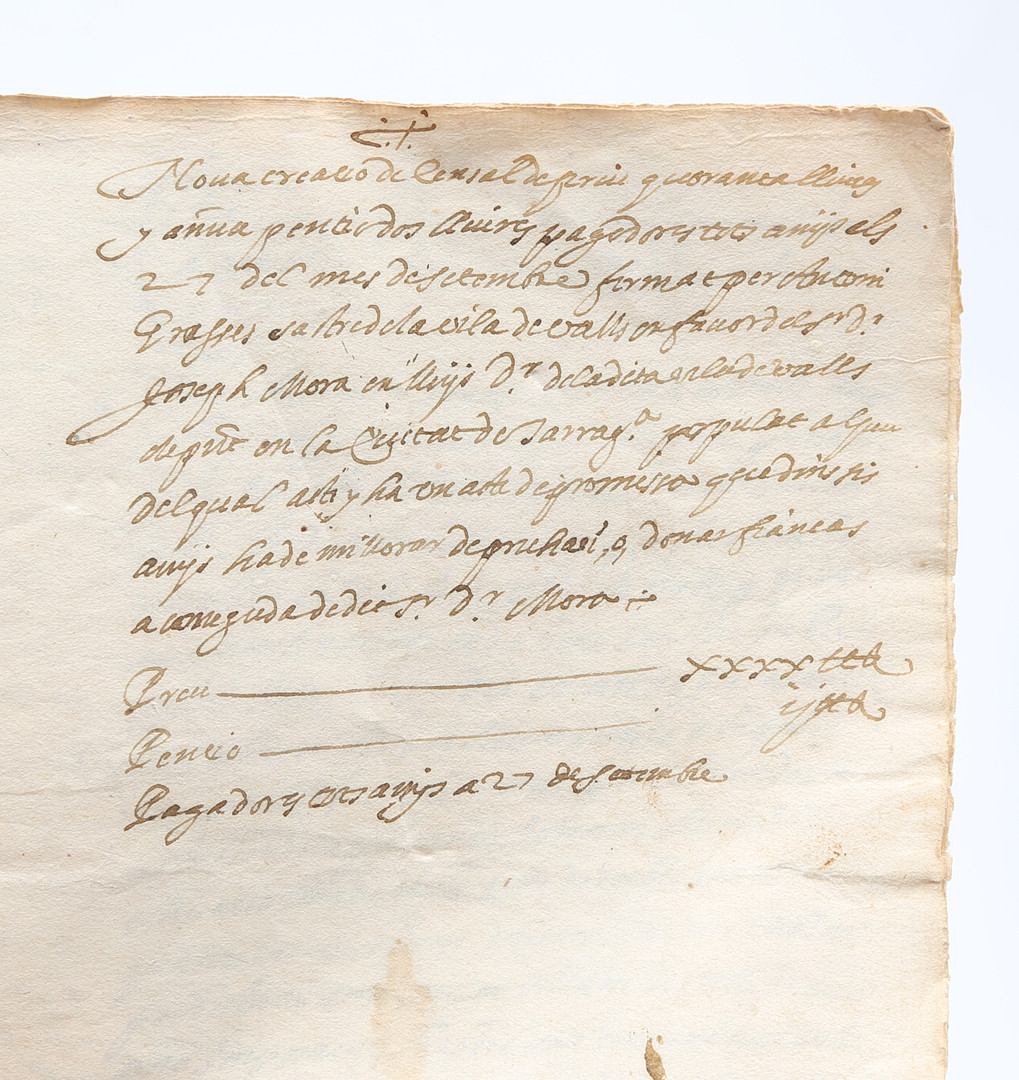 Nova creatio de Censal de preu quoranta lliures
y añua pentio dos lliures pagadores tots anijs als
27 del mes de setembre firmat per Antoni
Grasses sastre de la vila de valls en favor del Sr. Dr.
Joseph Mora en lleijs Dr. de la dita vila de valls
de pnt en la Ciutat de Tarraga. populat a
del qual acte y ha un acte de promissa que dins sis
anijs ha de millorar de o donar fiancas
a coneguda de dit Sr. Dr. Mora
Preu xxxx ll
Pentio ij ll
Pagadores tots anijs a 27 de setembre